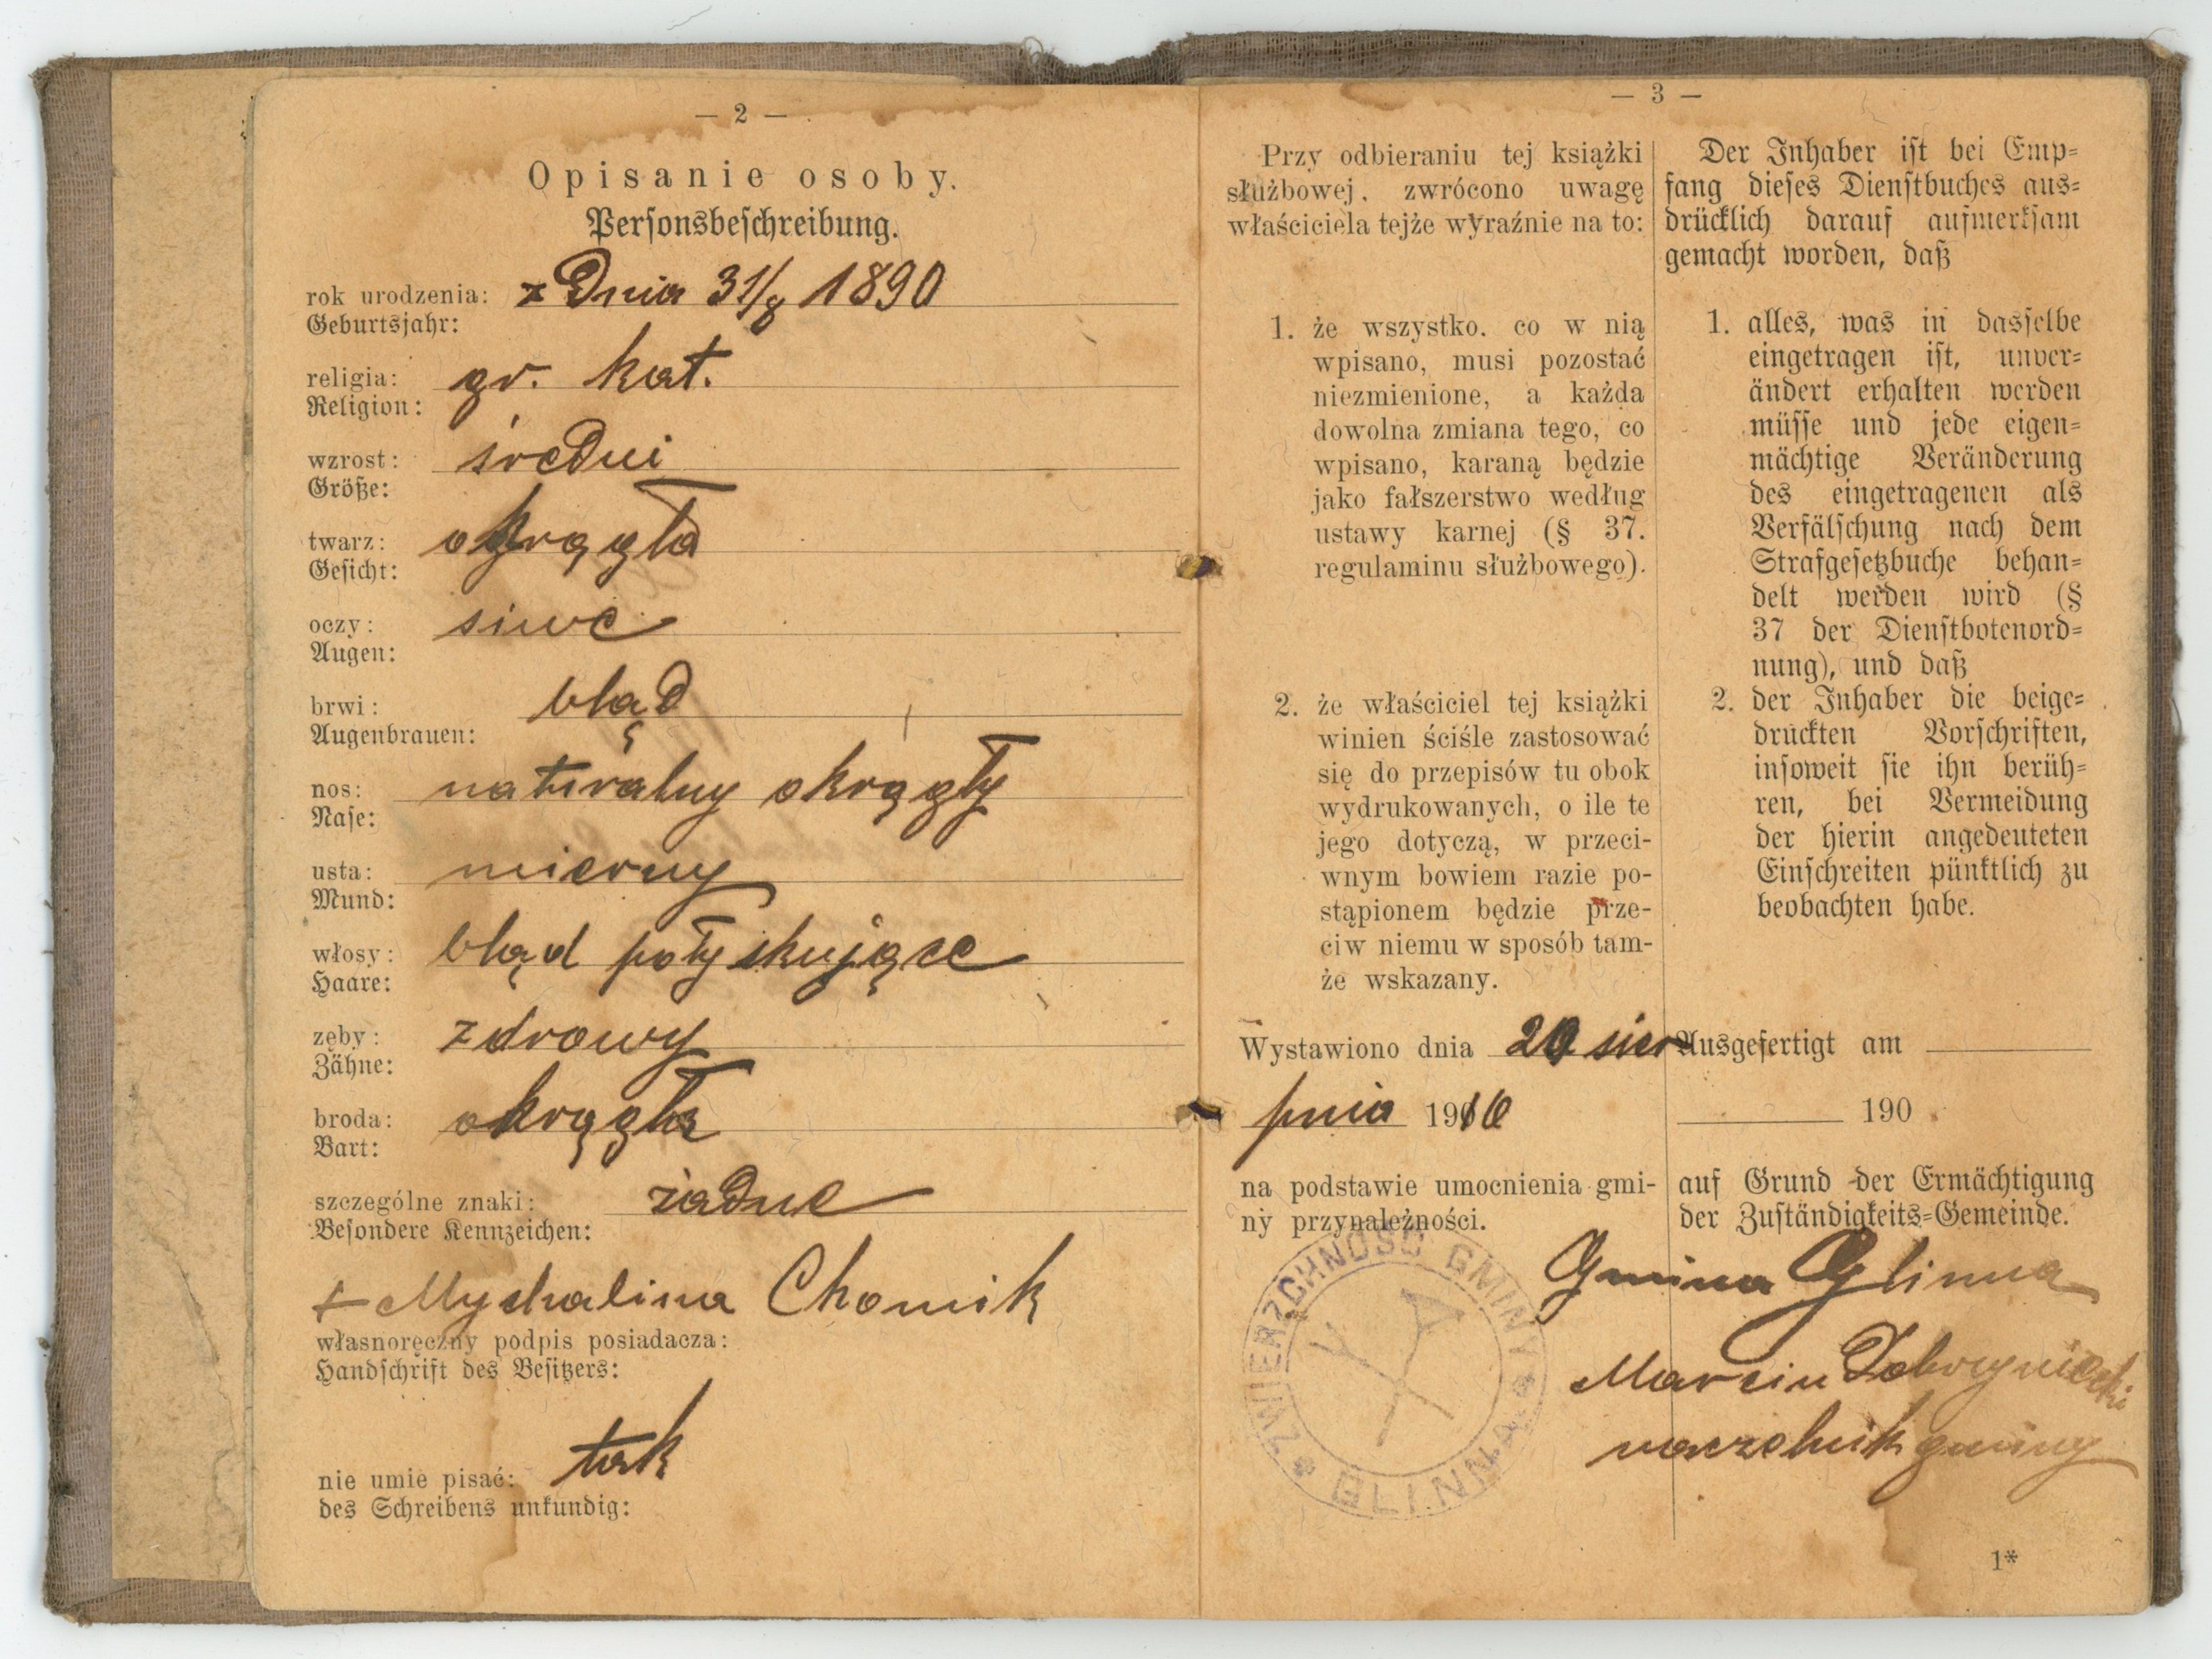 — 2 —
Opisanie osoby.
Personsbeschreibung.
rok urodzenia: z Dnia 31/8 1890
Geburtsjahr:
religia: gr. kat.
Religion:
wzrost: średni
Größe:
twarz: okrągła
Gesicht:
oczy: siwe
Augen:
brwi: bląd
Augenbrauen:
nos: naturalny okrągły
Nase:
usta: mierny
Mund:
włosy: bląd połyskujące
Haare:
zęby: zdrowy
Zähne:
broda: okrągła
Bart:
szczególne znaki: żadne
Besondere Kennzeichen:
+ Mychalina Chomik
własnoręczny podpis posiadacza:
Handschrift des Besitzers:
nie umie pisać: tak
des Schreibens unkundig:
— 3 —
Przy odbieraniu tej książki
służbowej, zwrócono uwagę
właściciela tejże wyraźnie na to:
1. że wszystko. co w nią
wpisano, musi pozostać
niezmienione, a każda
dowolna zmiana tego, co
wpisano, karaną będzie
jako fałszerstwo według
ustawy karnej (§ 37.
regulaminu służbowego).
2. że właściciel tej książki
winien ściśle zastosować
się do przepisów tu obok
wydrukowanych, o ile te
jego dotyczą, w przeci-
wnym bowiem razie po-
stąpionem będzie prze-
ciw niemu w sposób tam-
że wskazany.
Wystawiono dnia 20 sier
pnia 1910
na podstawie umocnienia gmi-
ny przynależności.
Der Inhaber ist bei Emp-
fang dieses Dienstbuches aus-
drücklich darauf aufmerksam
gemacht worden, daß
1. alles, was in dasselbe
eingetragen ist, unver-
ändert erhalten werden
müsse und jede eigen-
mächtige Veränderung
des eingetragenen als
Verfälschung nach dem
Strafgesetzbuche behan-
delt werden wird (§
37 der Dienstbotenord-
nung), und daß
2. der Inhaber die beige-
druckten Vorschriften,
insoweit sie ihn berüh-
ren, bei Vermeidung
der hierin angedeuteten
Einschreiten pünktlich zu
beobachten habe.
Ausgefertigt am
190
auf Grund der Ermächtigung
der Zuständigkeits-Gemeinde.
ZWIERZCHNOŚĆ GMINY
GLINNA
Gmina Glinna
Marcin
naczelnik gminy
1*